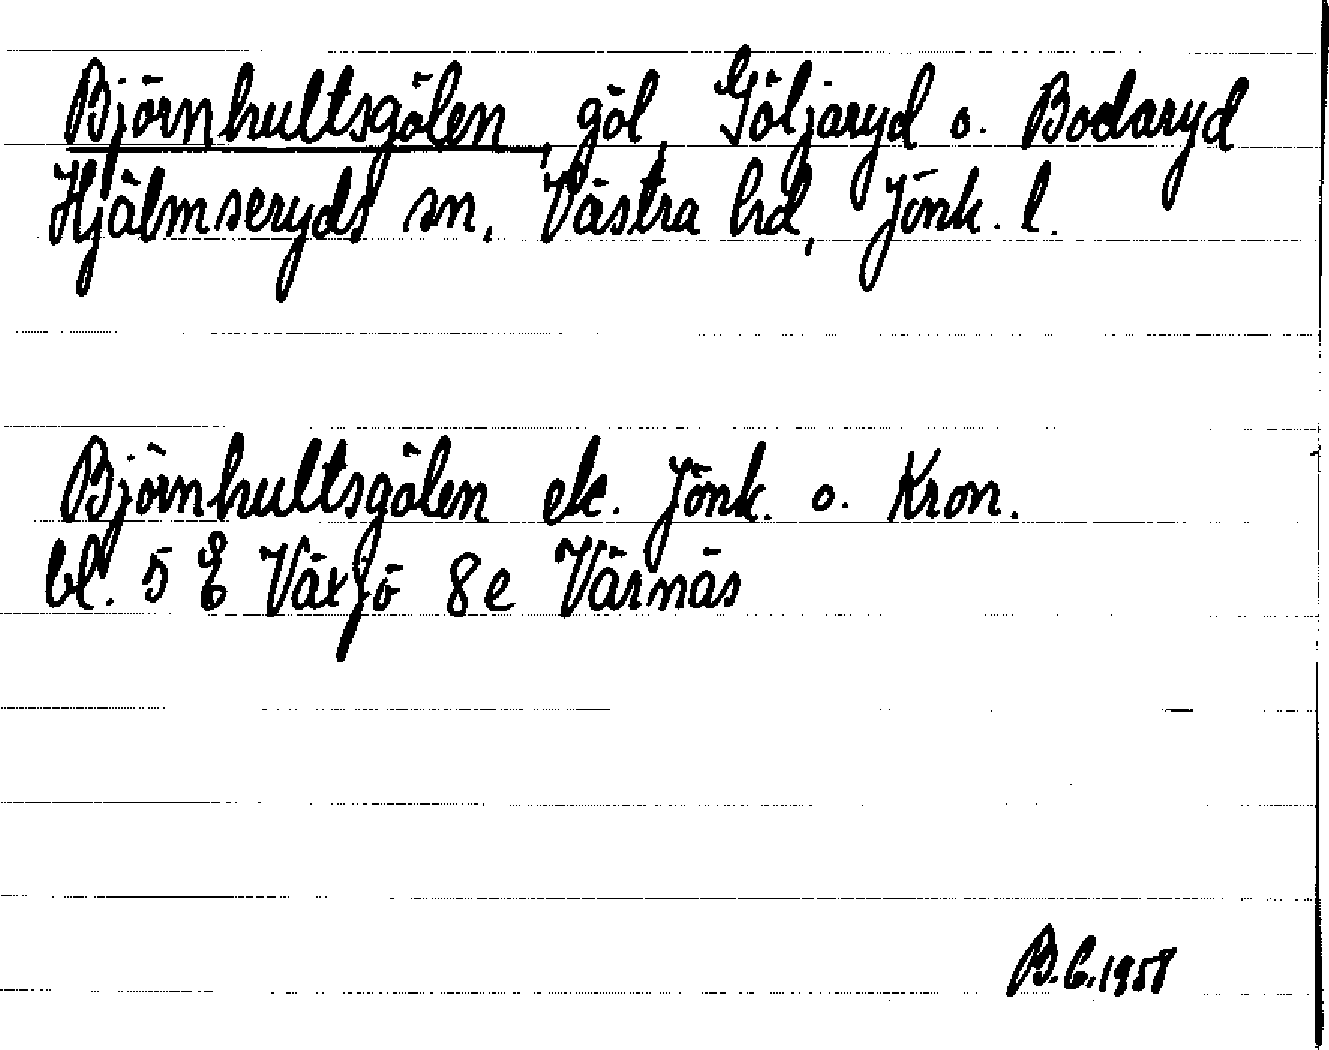 Björnhultsgölen, göl, Göljaryd o. Bodaryd
Hjälmseryds sn, Västra hd, Jönk. l.
Björnhultsgölen ek. Jönk. o. Kron.
bl. 5 E Växjö 8e Värnäs
B.C. 1958